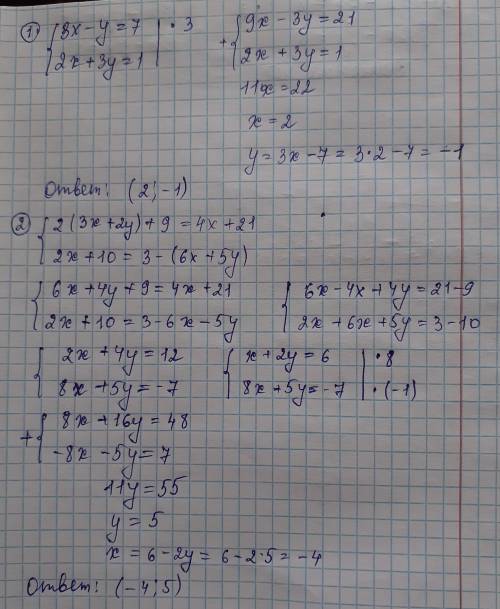 ① { 3x - y = 7 | · 3    + { 9x - 3y = 21
{ 2x + 3y = 1 |    { 2x + 3y = 1
11x = 22
x = 2
y = 3x - 7 = 3·2 - 7 = -1
Ответ: (2; -1)
② { 2(3x + 2y) + 9 = 4x + 21
{ 2x + 10 = 3 - (6x + 5y)
{ 6x + 4y + 9 = 4x + 21    { 6x - 4x + 4y = 21 - 9
{ 2x + 10 = 3 - 6x - 5y    { 2x + 6x + 5y = 3 - 10
{ 2x + 4y = 12    { x + 2y = 6 | · 8
{ 8x + 5y = -7    { 8x + 5y = -7 | · (-1)
+ { 8x + 16y = 48
{ -8x - 5y = 7
11y = 55
y = 5
x = 6 - 2y = 6 - 2·5 = -4
Ответ: (-4; 5)